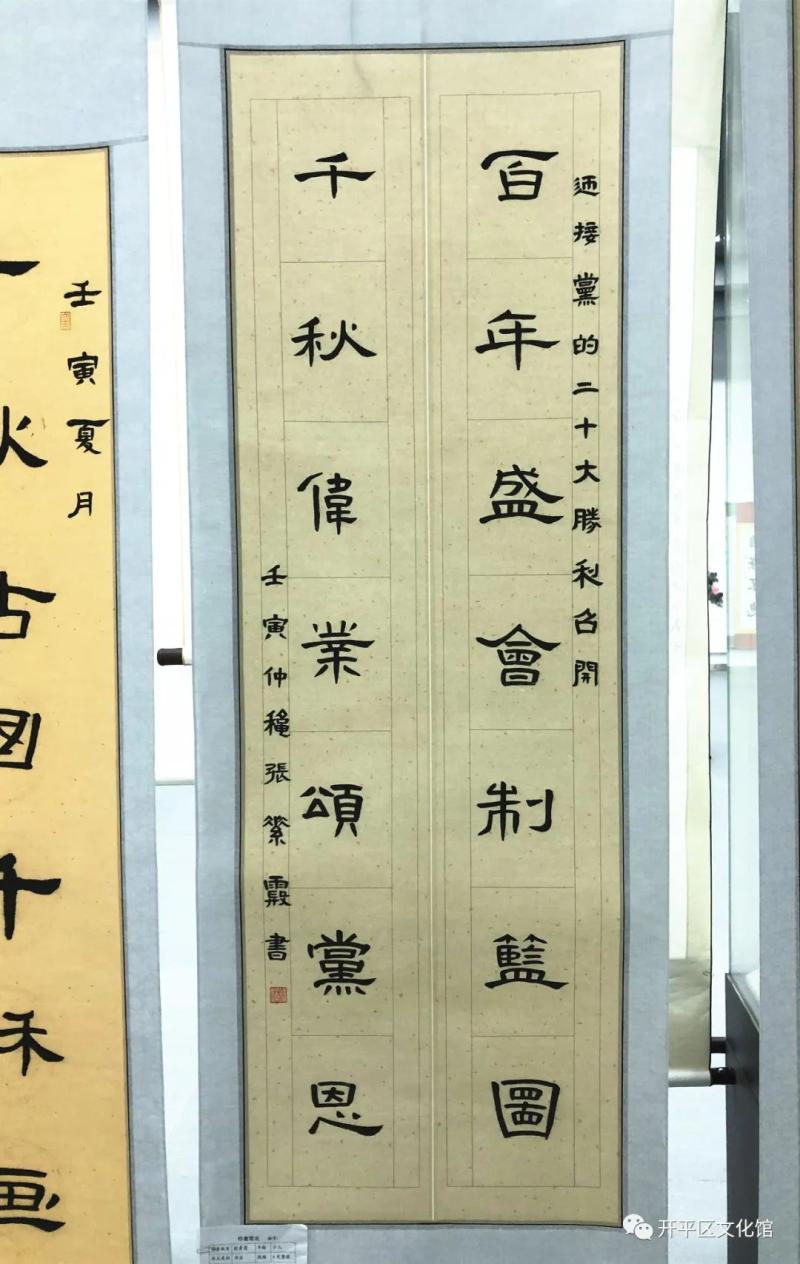 迊接黨的二十大勝利召開
百年盛會制籃圖
千秋偉業頌黨恩
壬寅仲穐張縈霞書
壬寅夏月
秋古國千秋画
开平区文化馆